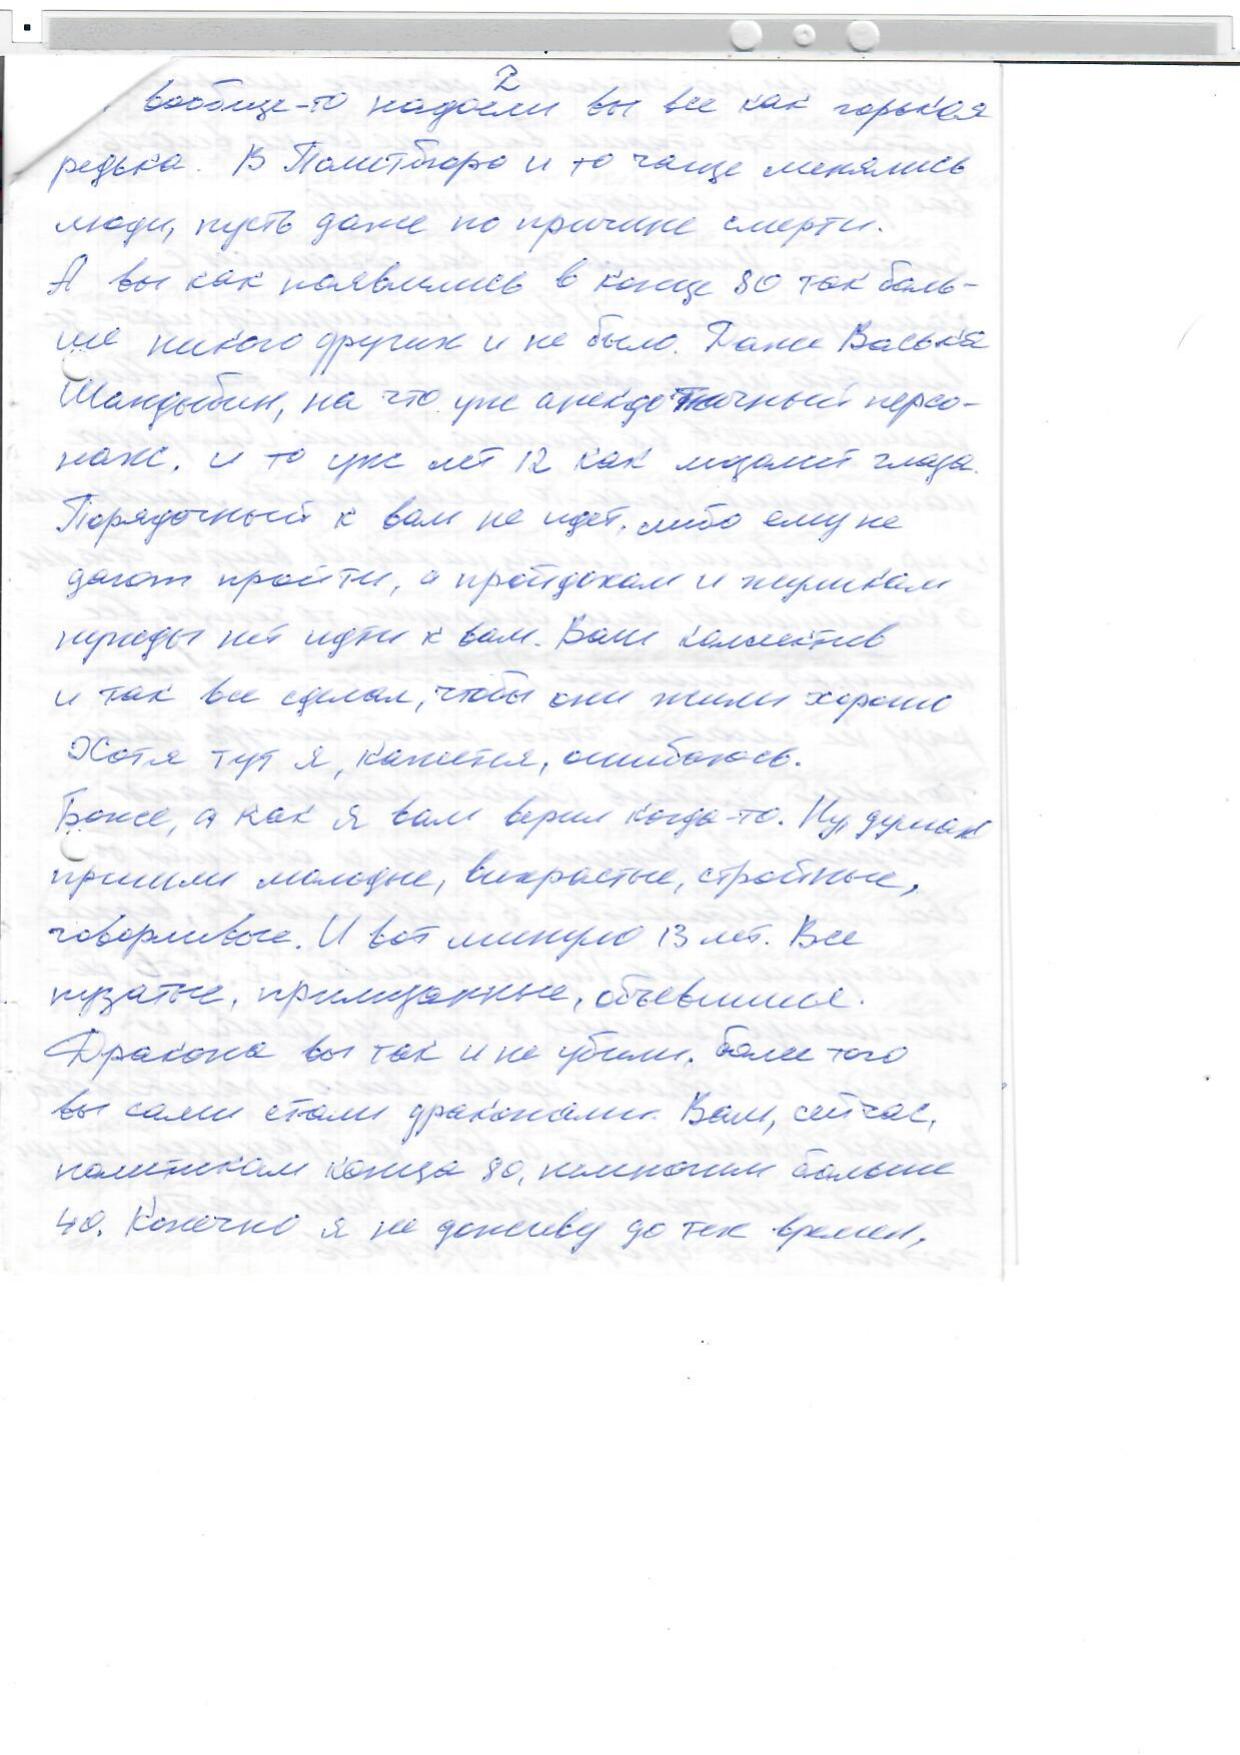 2
вообще-то надоели вы все как горькая
редька. В Политбюро и то чаще менялись
люди, пусть даже по причине смерти.
А вы как появились в конце 80 так боль-
ше никого других и не было. Даже Васька
Шандыбин, на что уже анекдотичный персо-
наж, и то уже лет 12 как мозолит глаза.
Порядочный к вам не идет, либо ему не
дают пройти, а пройдохам и жуликам
нужды нет идти к вам. Ваш коллектив
и так все сделал, чтобы они жили хорошо
Хотя тут я, кажется, ошибаюсь.
Боже, а как я вам верил когда-то. Ну, думал
пришли молодые, вихрастые, стройные,
говорливые. И вот минуло 13 лет. Все
пузатые, прилизанные, объевшиеся.
Дракона вы так и не убили, более того
вы сами стали драконами. Вам, сейчас,
политикам конца 80, немногим больше
40. Конечно я не доживу до тех времен,